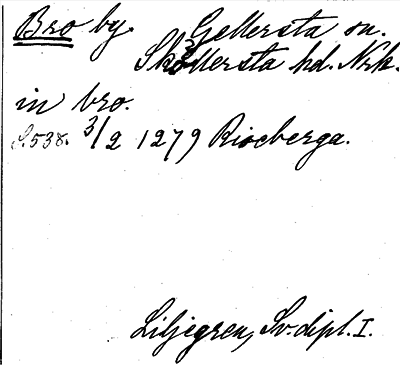 Bro by. Gellersta sn.
Sköllersta hd. Nrk.
in bro.
S.538. 3/2 1279 Riseberga.
Liljegren, Sv. dipl. I.